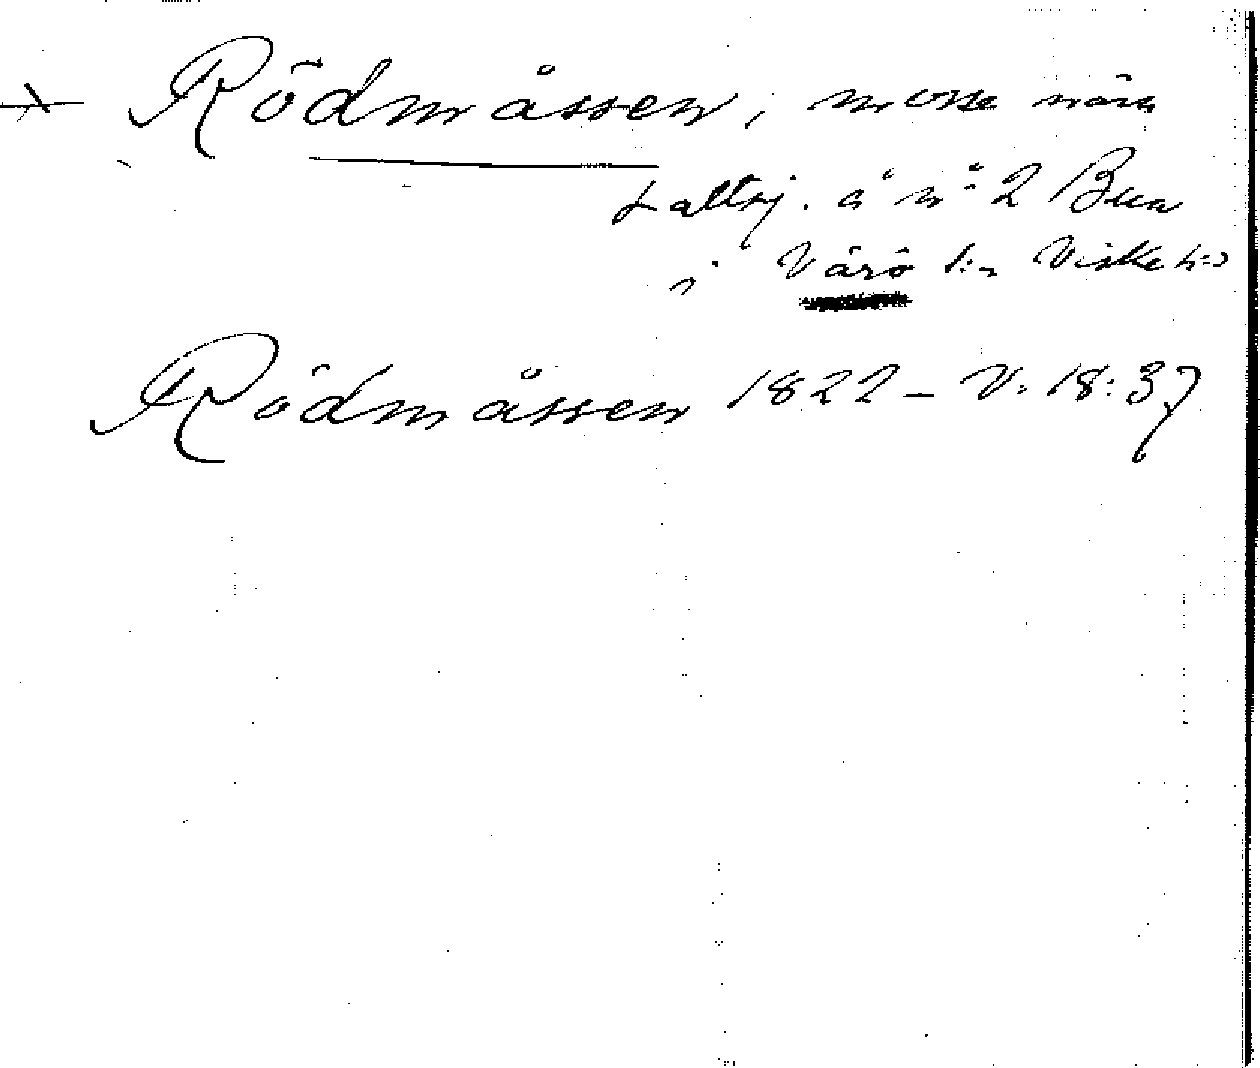 Rödmåssen, mosse nära
Lattsj. å n:o 2 Bua
i Värö s:n Viske h:d
Rödmåssen 1822 – V: 18:37